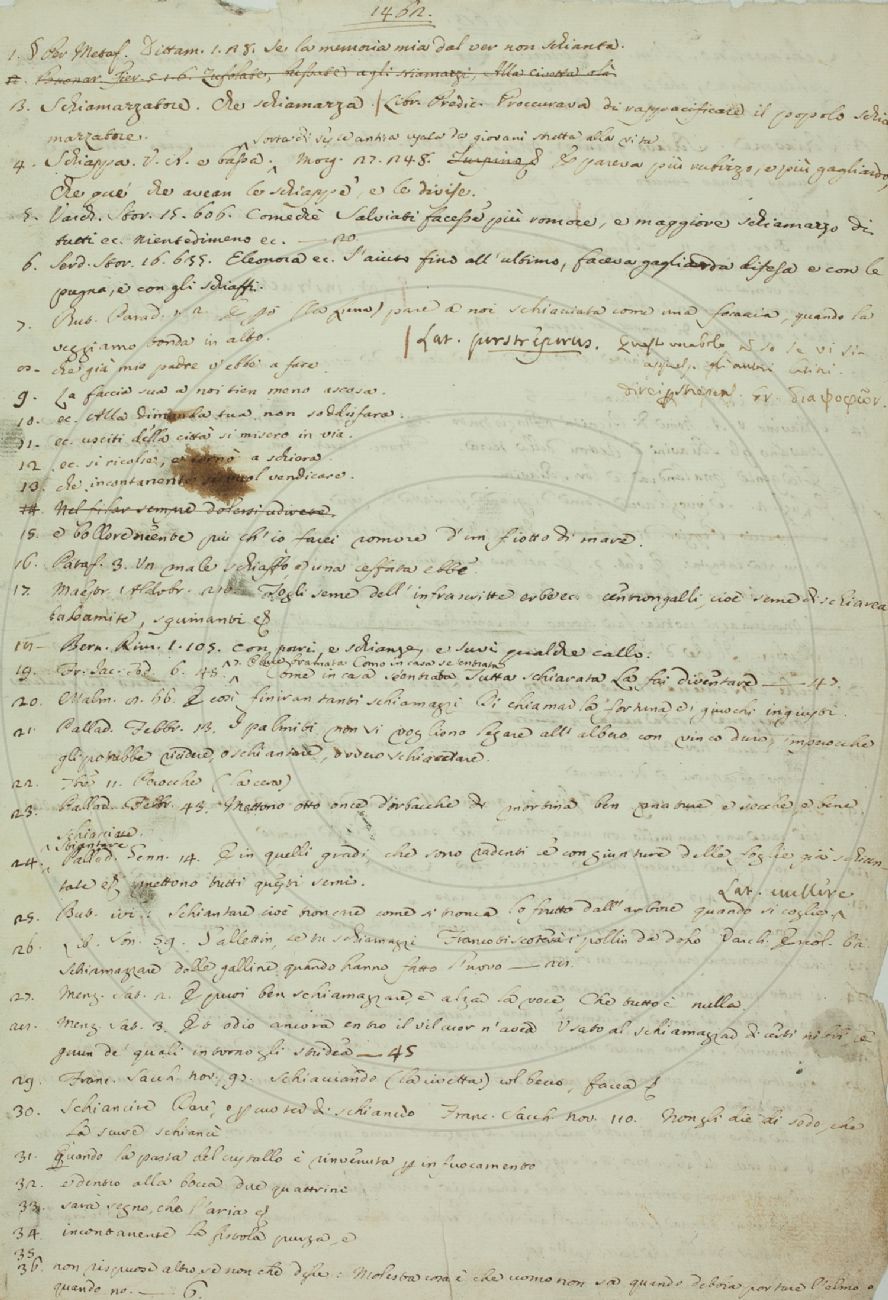 1462.
1. § Per Metaf. Dittam. 1. 28. Se la memoria mia dal ver non schianta.
3. Schiamazzatore. Che schiamazza. Libr. Predic. Proccurava di rappacificare il popolo schia
mazzatore.
sorta di veste antica usata da giovani stretta alla vita
4. Schiappa. V. A. e bassa. Morg. 27. 248. E pareva più rubizzo, e più gagliardo,
Che que' che avean le schiappe, e le divise.
5. Varch. Stor. 15. 606. Comechè Salviati facesse più romore, e maggiore schiamazzo di
tutti ec. nientedimeno ec. — 20
6. Serd. Stor. 16. 635. Eleonora ec. s'aiutò fino all'ultimo, faceva gagliarda difesa e con le
pugna, e con gli schiaffi.
7. But. Parad. 1. 2. (la Luna) pare a noi schiacciata come una focaccia, quando la
veggiamo tonda in alto.
Lat. perstrepérus. Quest vocabolo non so se vi sia
8. che già mio padre v'ebbe a fare.
9. La faccia sua a noi tien meno ascosa.
10. ec. Alla dimanda tua non soddisfara.
11. ec. usciti della città si misero in via.
12. ec. si ricolse, e tornò a schiera.
13. che incontanente si vuol vendicare.
14. Nel filar sempre dolersi udirete.
15. e bollore niente più ch'io facei romore d'un fiotto di mare.
16. Pataf. 3. Un male schiaffo, o una ceffata ebbe.
17. Maestr. Aldobr. Togli seme dell'infrascritte erbe ec. centrongalli, cioè seme di schiarea
balsamite, sgumanti
18. Bern. Rim. 1. 105. Con porri, e schianze, e suvi qualche callo.
19. Fr. Jac. Tod. 6. 48.
Come in casa se entrata
Come in casa s'entrata Tutta schiarata La fai diventare — 47.
20. Malm. 9. 66. E così finiran tanti schiamazzi Di chiamar la fortuna, e i giuochi ingiusti.
21. Pallad. Febbr. 13. I palmiti, non si vogliono legare all'albero con vinco duro, imperocchè
gli potrebbe ricidere, o schiantare, ovvero schiacciare.
22. 11. Perocchè (la cera)
23. Pallad. Febbr. 43. Mettono otto once d'orbacche di mortina ben mature e secche, e bene
schiacciate.
Schiantare
24. Pallad. Genn. 14. E in quelli gradi, che sono radenti le congiunture delle foglie già schian-
tate mettono tutti questi semi.
Lat. vellere
25. But. ivi: Schiantare cioè troncare come si tronca lo frutto dall'arbore quando si coglie.
26. Lib. Son. 59. Pallettin, se tu schiamazzi Varch. Ercol. 61.
Schiamazzare delle galline quando hanno fatto l'uovo
27. Menz. Sat. 2. E puoi ben schiamazzare, e alzar la voce, Che tutto è nulla.
28. Menz. Sat. 3. Ed odio ancora entro il vil cuor n'avea Usato al schiamazzar di
de' quali intorno gli stridea — 45
29. Franc. Sacch. nov. 97. Schiacciando (la civetta) col becco, facea
30. Schiancire Dare, o percuoter di schiancio Franc. Sacch. nov. 110. Non gli die di sodo, che
la scure schiancì
31. Quando la pasta del cristallo è rinvenuta per infuocamento
32. e dentro alla bocca due quattrini
33. sarà segno, che l'aria
34. incontanente la fistola puzza, e
35.
36. non rispuose altro se non che disse: Molesta cosa è che uomo non sa quando debbia portare l'elmo o
quando no. — 6.